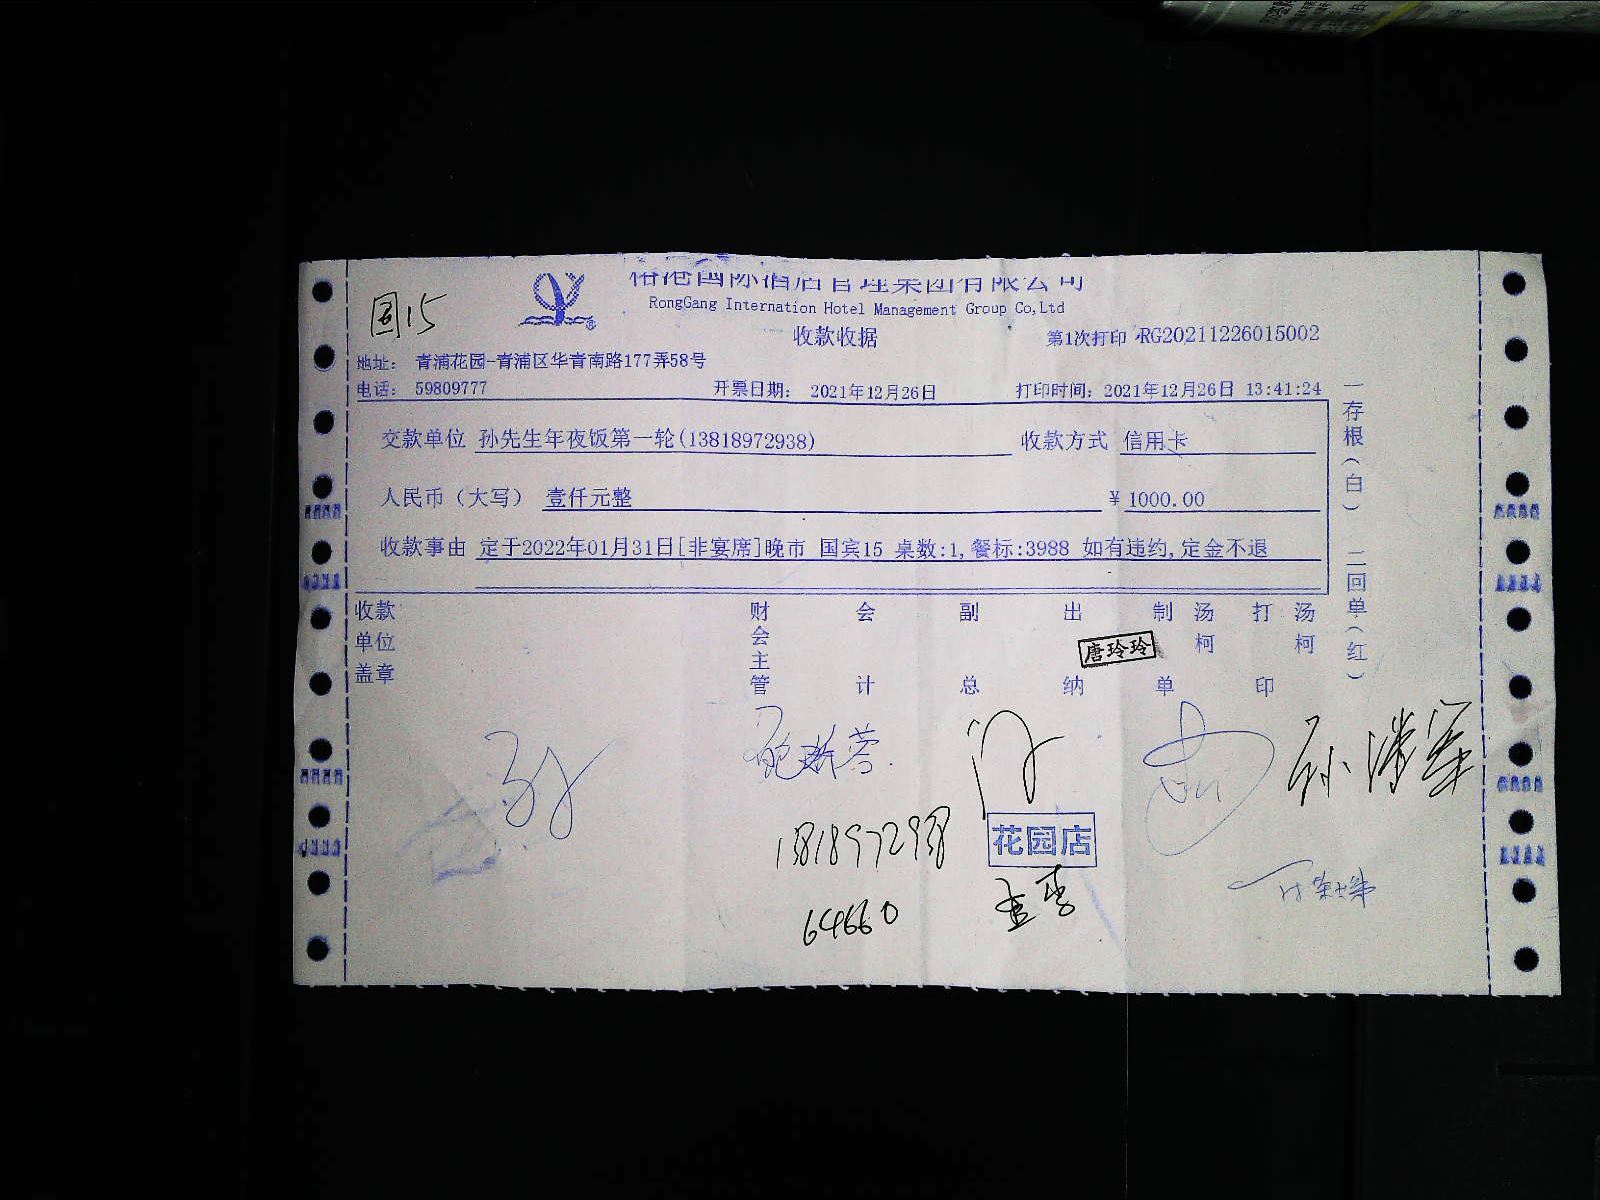 国15
国际酒店管理集团有限公司
RongGang Internation Hotel Management Group Co,Ltd
收款收据
第1次打印 RG20211226015002
地址: 青浦花园-青浦区华青南路177弄58号
电话: 59809777 开票日期: 2021年12月26日 打印时间: 2021年12月26日 13:41:24
交款单位 孙先生年夜饭第一轮(13818972938) 收款方式 信用卡
人民币（大写） 壹仟元整 ¥ 1000.00
收款事由 定于2022年01月31日[非宴席]晚市 国宾15 桌数:1,餐标:3988 如有违约,定金不退
一存根(白) 二回单(红)
收款单位盖章 财会主管 会计 副总 出纳 制单 汤柯 打印 汤柯
唐玲玲
13818972938
花园店
64660